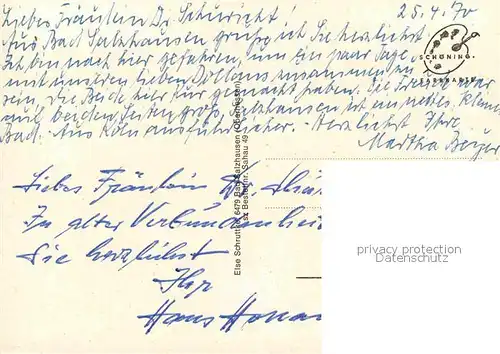 Liebes Fräulein Dr. Schuricht! 25.4.70
Aus Bad Salzhausen grüße ich Sie herzlichst.
Ich bin nach hier gefahren, um ein paar Tage
mit unseren lieben zusammen zu
sein, die Beide hier Kur gemacht haben. Die Freude war
auf beiden Seiten groß. Salzhausen ist ein nettes, kleines
Bad. Aus Köln ausführlicher. Herzlichst Ihre
Martha
SCHÖNING
Liebes Fräulein Dr.
In alter Verbundenheit
Sie herzlichst
Ihr
Hans
Else Schrutt, 6479 Bad Salzhausen
Bestellnr. Sahau 49
privacy protection